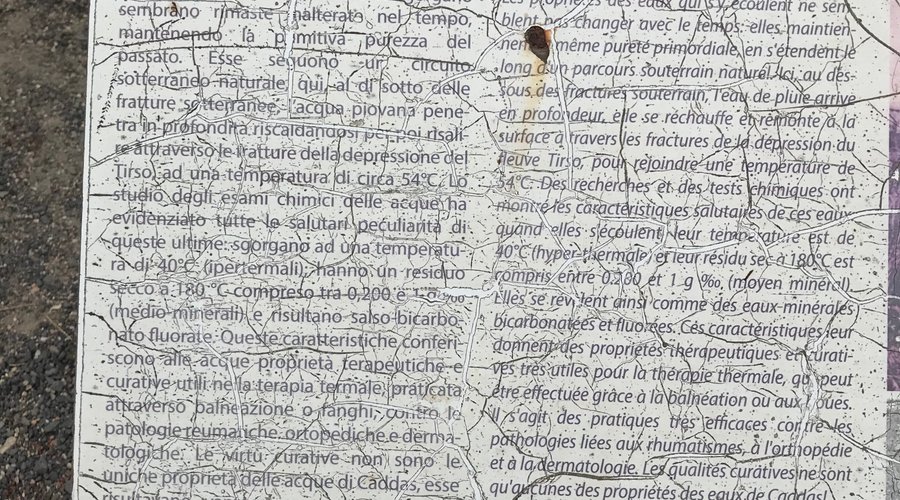 sembrano rimaste inalterate nel tempo,
mantenendo la primitiva purezza del
passato. Esse seguono un circuito
sotterraneo naturale qui, al di sotto delle
fratture sotterranee, l'acqua piovana pene-
tra in profondità riscaldandosi per poi risali-
re attraverso le fratture della depressione del
Tirso, ad una temperatura di circa 54°C. Lo
studio degli esami chimici delle acque ha
evidenziato tutte le salutari peculiarità di
queste ultime: sgorgano ad una temperatu-
ra di 40°C (ipertermali), hanno un residuo
secco a 180 °C compreso tra 0,200 e 1 g ‰
(medio minerali) e risultano salso bicarbo-
nato fluorate. Queste caratteristiche conferi-
scono alle acque proprietà terapeutiche e
curative utili ne la terapia termale, praticata
attraverso balneazione o fanghi, contro le
patologie reumatiche, ortopediche e derma-
tologiche. Le virtù curative non sono le
uniche proprietà delle acque di Caddas, esse
Les propriétés des eaux qui s'y écoulent ne sem-
blent pas changer avec le temps: elles maintien-
nent même pureté primordiale, en s'étendent le
long d'un parcours souterrain naturel. Ici, au des-
sous des fractures souterrain, l'eau de pluie arrive
en profondeur, elle se réchauffe et remonte à la
surface à travers les fractures de la dépression du
fleuve Tirso, pour rejoindre une température de
54°C. Des recherches et des tests chimiques ont
montré les caractéristiques salutaires de ces eaux
quand elles s'écoulent, leur température est de
40°C (hyper-thermale) et leur résidu sec à 180°C est
compris entre 0,200 et 1 g ‰, (moyen minéral).
Elles se révèlent ainsi comme des eaux minérales
bicarbonatées et fluorées. Ces caractéristiques leur
donnent des propriétés thérapeutiques et curati-
ves très utiles pour la thérapie thermale, qui peut
être effectuée grâce à la balnéation ou aux
Il s'agit des pratiques très efficaces contre les
pathologies liées aux rhumatismes, à l'orthopédie
et à la dermatologie. Les qualités curatives ne sont
qu'aucunes des propriétés des eaux de Caddas.